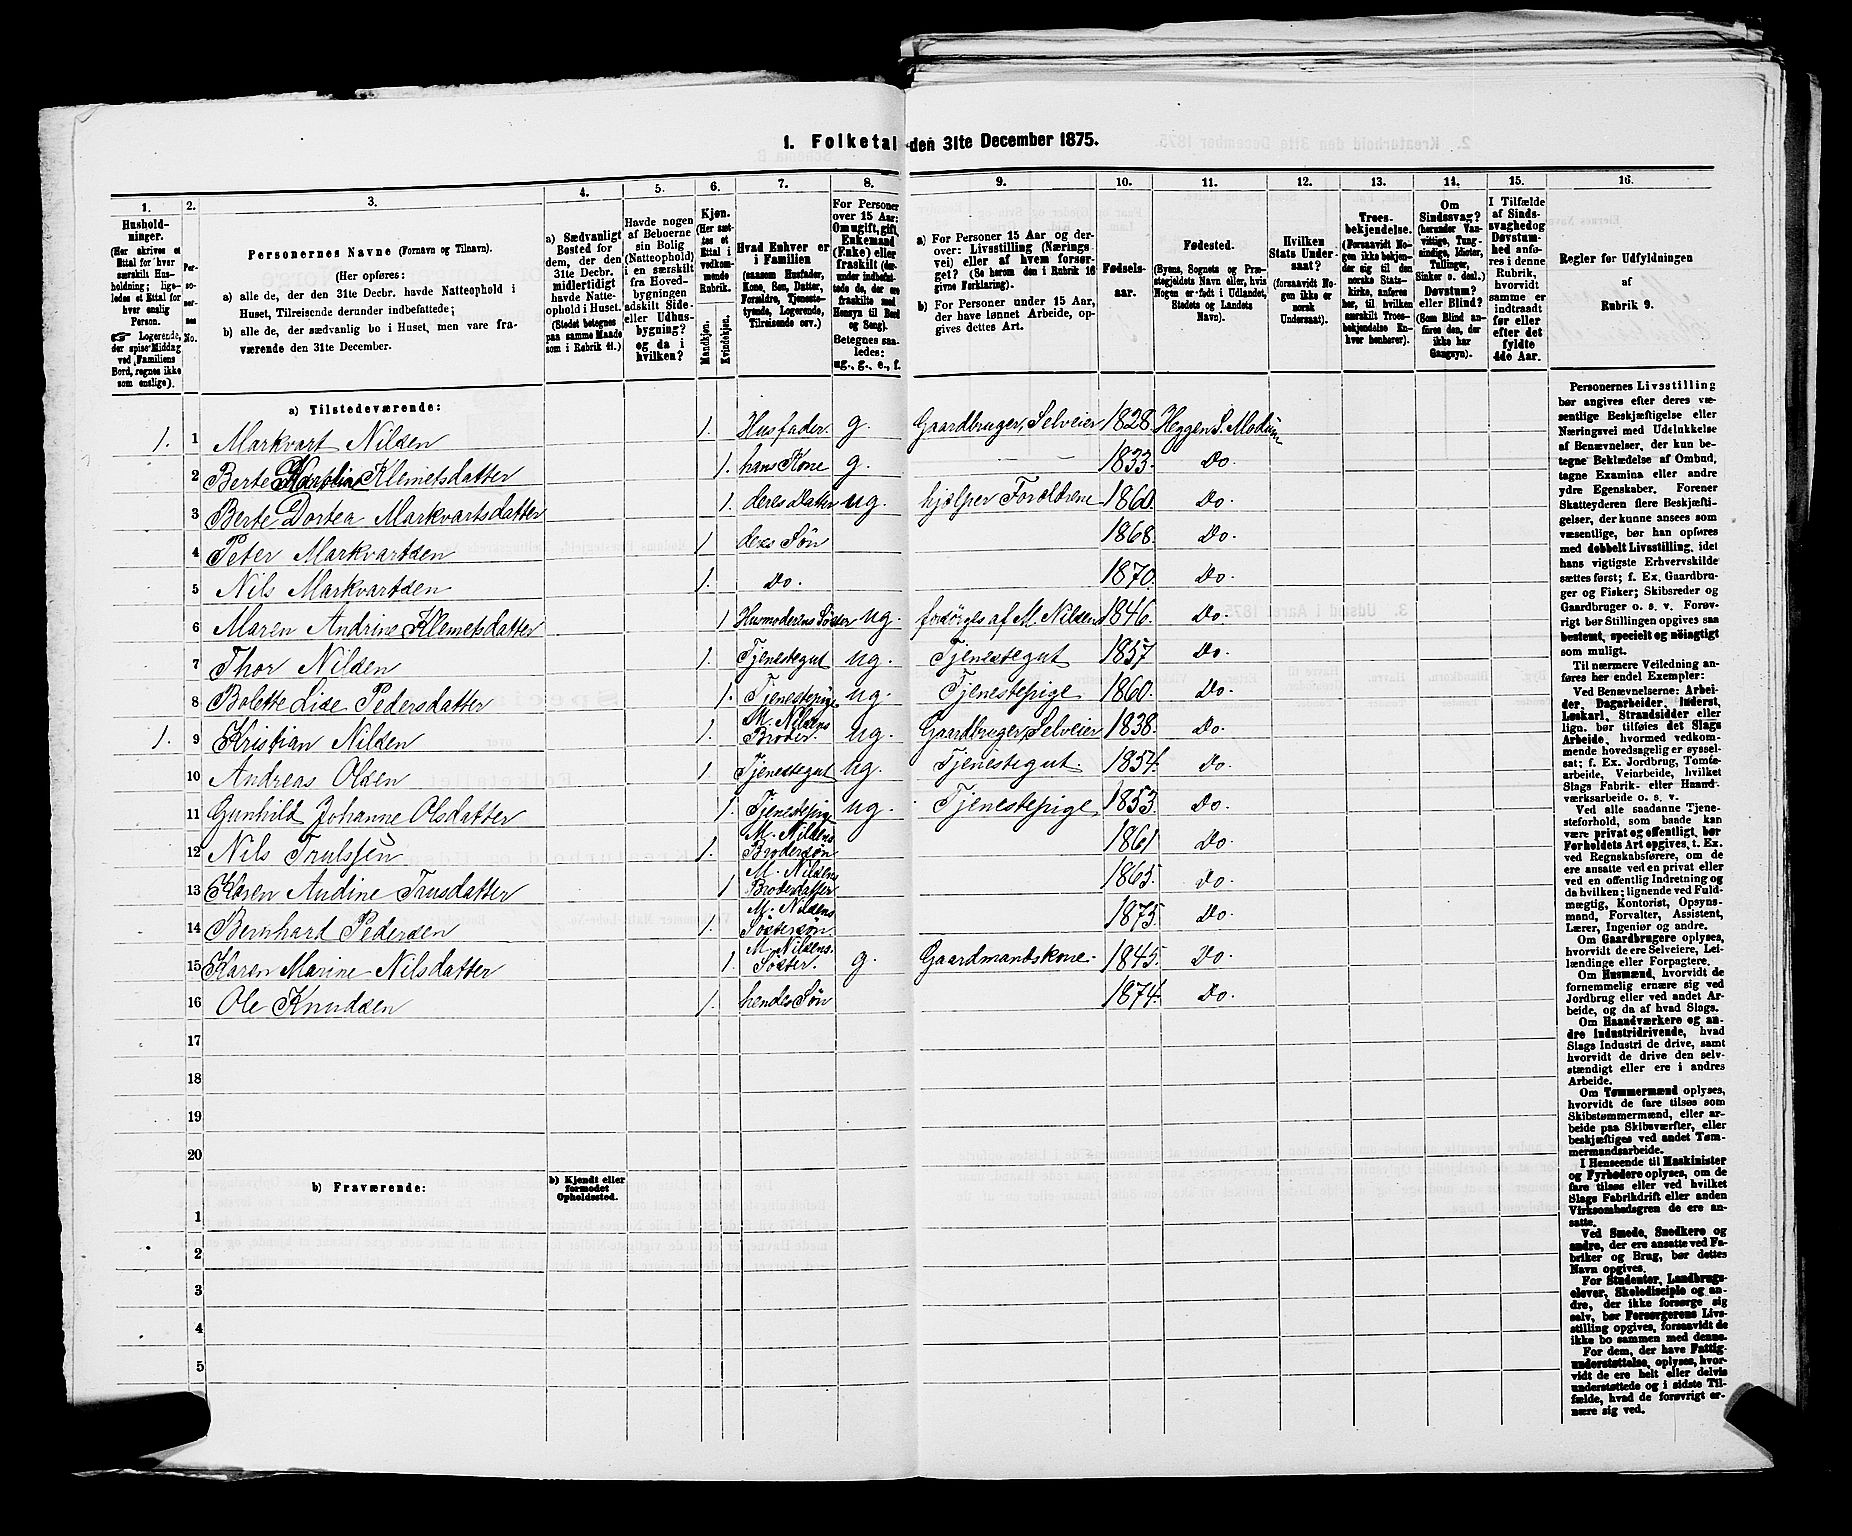 1. Folketal den 31te December 1875.
1. 2. 3. 4. 5. 6. 7. 8. 9. 10. 11. 12. 13. 14. 15. 16.
Hushold-
ninger.
(Her skrives et
Ettal for hver
særskilt Hus-
holdning; lige-
ledes et Ettal for
hver enslig
Person.
Logerende,
der spise Middag
ved Familiens
Bord, regnes ikke
som enslige).
Per-
soner-
nes
No.
Personernes Navne (Fornavn og Tilnavn).
(Her opføres:
a) alle de, der den 31te Decbr. havde Natteophold i
Huset, Tilreisende derunder indbefattede;
b) alle de, der sædvanlig bo i Huset, men vare fra-
værende den 31te December.
a) Sædvanligt
Bosted for
dem, der den
31te Decbr.
midlertidigt
havde Natte-
ophold i Huset.
(Stedet betegnes
paa samme Maade
som i Rubrik 11.)
Havde nogen
af Beboerne
sin Bolig
(Natteophold)
i en særskilt
fra Hoved-
bygningen
adskilt Side-
eller Udhus-
bygning?
og da i
hvilken?
Kjøn.
(Her sæt-
tes et
Ettal i
vedkom-
mende
Rubrik.
Mandkjøn. Kvindekjøn.
Hvad Enhver er
i Familien
(saasom Husfader,
Kone, Søn, Datter,
Forældre, Tjeneste-
tyende, Logerende,
Tilreisende osv.)
For Personer
over 15 Aar:
Om ugift, gift,
Enkemand
(Enke) eller
fraskilt (der-
under indbefat-
tede de, der ere
fraskilte med
Hensyn til Bord
og Seng).
Betegnes saa-
ledes:
ug., g., e., f.
a) For Personer 15 Aar og der-
over: Livsstilling (Nærings-
vei) eller af hvem forsør-
get? (Se herom den i Rubrik 16
givne Forklaring).
b) For Personer under 15 Aar,
der have lønnet Arbeide, op-
gives dettes Art.
Fødsels-
aar.
Fødested.
(Byens, Sognets og Præ-
stegjeldets Navn eller, hvis
Nogen er født i Udlandet,
Stedets og Landets
Navn).
Hvilken
Stats Under-
saat?
(forsaavidt No-
gen ikke er
norsk
Undersaat).
Troes-
bekjendelse.
(Forsaavidt No-
gen ikke bekjen-
der sig til den
norske Stats-
kirke, anføres
her, til hvilken
særskilt Troes-
bekjendelse En-
hver henhører).
Om
Sindssvag?
(herunder Van-
vittige, Tung-
sindige, Idioter,
Tullinger,
Sinker o. desl.)
Døvstum?
eller Blind?
(Som Blind an-
føres den, der
ikke har
Gangsyn).
I Tilfælde
af Sinds-
svaghed og
Døvstum-
hed anfø-
res i denne
Rubrik,
hvorvidt
samme er
indtraadt
før eller
efter det
fyldte
4de Aar.
Regler for Udfyldningen
af
Rubrik 9.
a) Tilstedeværende:
1. 1 Markvart Nilsen 1. Husfader. g. Gaardbruger, Selveier 1828. Heggen S. Modum
2 Berte Karoline Klemetsdatter 1. hans Kone g. — — 1833. Do.
3 Berte Dortea Markvartsdatter 1. deres Datter ug. hjælper Forældrene 1860. Do.
4 Peter Markvartsen 1 deres Søn 1868. Do.
5 Nils Markvartsen 1. Do. 1870. Do.
6 Maren Andrine Klemetsdatter 1 Husmoderens Søster ug. forsørges af M. Nilsen 1846. Do.
7 Thor Nilsen 1. Tjenestegut ug. Tjenestegut 1857 Do.
8 Bolette Lise Pedersdatter 1. Tjenestepige ug. Tjenestepige 1860. Do.
1. 9 Kristian Nilsen 1. M. Nilsens Broder. ug. Gaardbruger, Selveier 1838. Do.
10 Andreas Olsen 1. Tjenestegut ug. Tjenestegut. 1854. Do.
11 Gunhild Johanne Olsdatter 1. Tjenestepige ug. Tjenestepige 1853. Do.
12 Nils Trulssen 1. M. Nilsens Brodersøn 1861 Do.
13 Karen Andine Trulsdatter 1 M. Nilsens Broderdatter 1865. Do.
14 Bernhard Pedersen 1. M. Nilsens Søstersøn 1875. Do.
15 Karen Marine Nilsdatter 1. M. Nilsens Søster. g. Gaardmandskone. 1845. Do.
16 Ole Knudsen 1. hendes Søn 1874. Do.
17
18
19
20
b) Fraværende:
b) Kjendt eller
formodet
Opholdssted.
1
2
3
4
5
Personernes Livsstilling
bør angives efter deres væ-
sentlige Beskjæftigelse eller
Næringsvei med Udelukkelse
af Benævnelser, der kun be-
tegne Beklædelse af Ombud,
tagne Examina eller andre
ydre Egenskaber. Forener
Skatteyderen flere Beskjæfti-
gelser, der kunne ansees som
væsentlige, bør han opføres
med dobbelt Livsstilling, idet
hans vigtigste Erhvervskilde
sættes først; f. Ex. Gaardbru-
ger og Fisker; Skibsreder og
Gaardbruger o. s. v. Forøv-
rigt bør Stillingen opgives saa
bestemt, specielt og nøiagtigt
som muligt.
Til nærmere Veiledning an-
føres her endel Exempler:
Ved Benævnelserne: Arbei-
der, Dagarbeider, Inderst,
Løskarl, Strandsidder eller
lign. bør tilføies det Slags
Arbeide, hvormed vedkom-
mende hovedsagelig er syssel-
sat; f. Ex. Jordbrug, Tomte-
arbeide, Veiarbeide, hvilket
Slags Fabrik- eller Haand-
værksarbeide o. s. v.
Ved alle saadanne Tjene-
steforhold, som baade kan
være privat og offentligt, bør
Forholdets Art opgives, t. Ex.
ved Regnskabsførere, om de
ere ansatte ved en privat eller
ved en offentlig Indretning og
da hvilken; lignende ved Fuld-
mægtig, Kontorist, Opsyns-
mand, Forvalter, Assistent,
Lærer, Ingeniør og andre.
Om Gaardbrugere oplyses,
hvorvidt de ere Selveiere, Lei-
lændinge eller Forpagtere.
Om Husmænd, hvorvidt de
fornemmelig ernære sig ved
Jordbrug eller ved andet Ar-
beide, og da af hvad Slags.
Om Haandværkere og an-
dre Industridrivende, hvad
Slags Industri de drive, samt
hvorvidt de drive den selv-
stændigt eller ere i andres
Arbeide.
Om Tømmermænd oplyses,
hvorvidt de fare tilsøs som
Skibstømmermænd, eller ar-
beide paa Skibsværfter, eller
beskjæftiges ved andet Tøm-
mermandsarbeide.
I Henseende til Maskinister
og Fyrbødere oplyses, om de
fare tilsøs eller ved hvilket
Slags Fabrikdrift eller anden
Virksomhedsgren de ere an-
satte.
Ved Smede, Snedkere og
andre, der ere ansatte ved Fa-
briker og Brug, bør dettes
Navn opgives.
For Studenter, Landbrugs-
elever, Skoledisciple og an-
dre, der ikke forsørge sig
selv, bør Forsørgerens Livs-
stilling opgives, forsaavidt de
ikke bo sammen med denne.
For dem, der have Fattig-
understøttelse, oplyses, hvor-
vidt de ere helt eller delvis
understøttede og i sidste Til-
fælde, hvad de forøvrigt er-
nære sig ved.